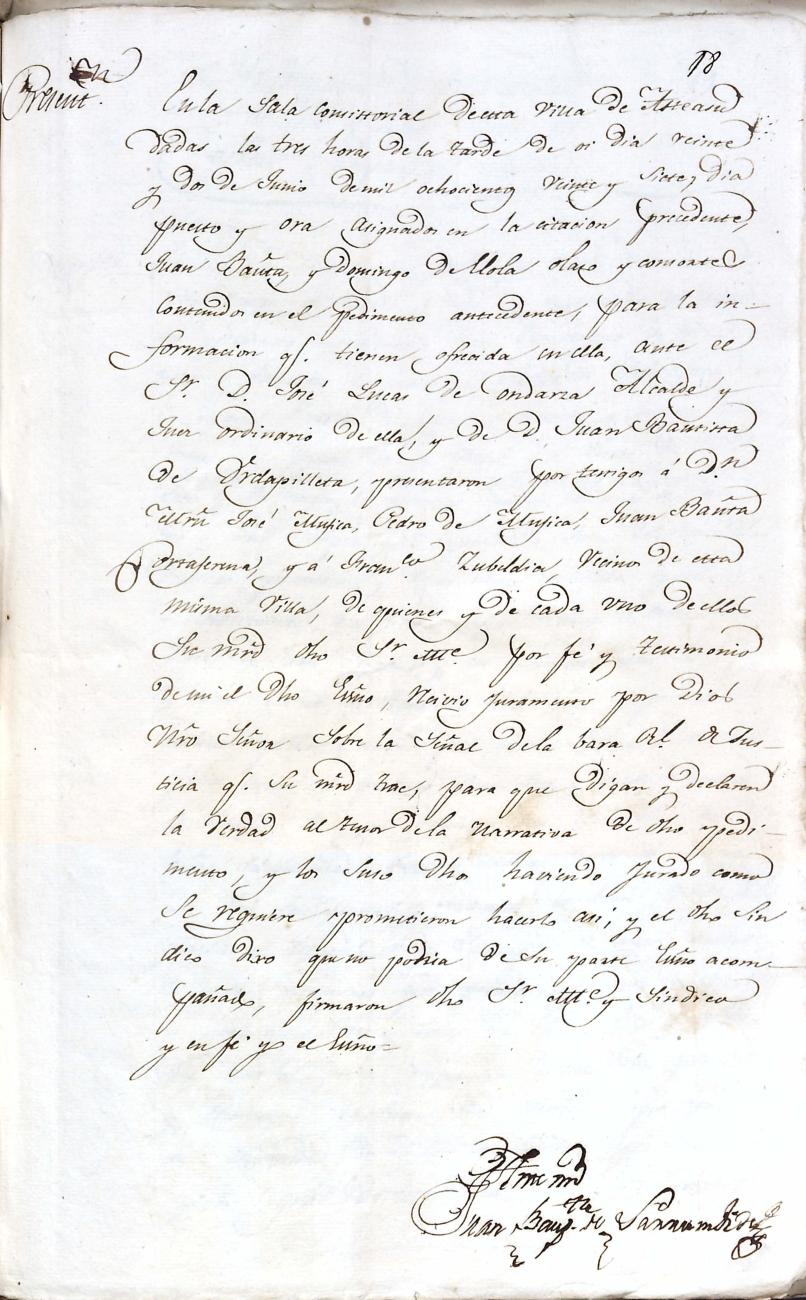 18
Present.n
En la Sala Consistorial de esta villa de Asteasu
dadas las tres horas de la tarde de oi dia veinte
y dos de Junio de mil ochocientos veinte y siete, dia
puesto y ora asignados en la citacion precedente,
Juan Baũta, y Domingo de Illola olazo y consortes
contenidos en el pedimento antecedente, para la in-
formacion q.e tienen ofrecida en ella, ante el
S.r D. José Lucas de ondarza Alcalde y
Juez ordinario de ella, y de D. Juan Bautista
de Urdapilleta, presentaron por testigos á D.n
José Mugica, Pedro de Mugica, Juan Baũta
y á Fran.co Zubeldia, Vecinos de esta
misma Villa, de quienes y de cada uno de ellos
Su mrd dho S.r Alle. por fé y testimonio
de mi el dho Esño, Recivio Juramento por Dios
Nro Señor sobre la Señal de la bara Rl. de Jus-
ticia q.e su mrd trae, para que digan y declaren
la Verdad al tenor de la Narrativa de dho pedi-
mento, y los suso dhos haviendo Jurado como
se requiere prometieron hacerlo asi, y el dho Sin
dico dixo que no podria de su parte Esño acom-
pañado, firmaron dho S.r Alle. y Sindico
y en fé yo el Esño=
Juan Baup.ta de